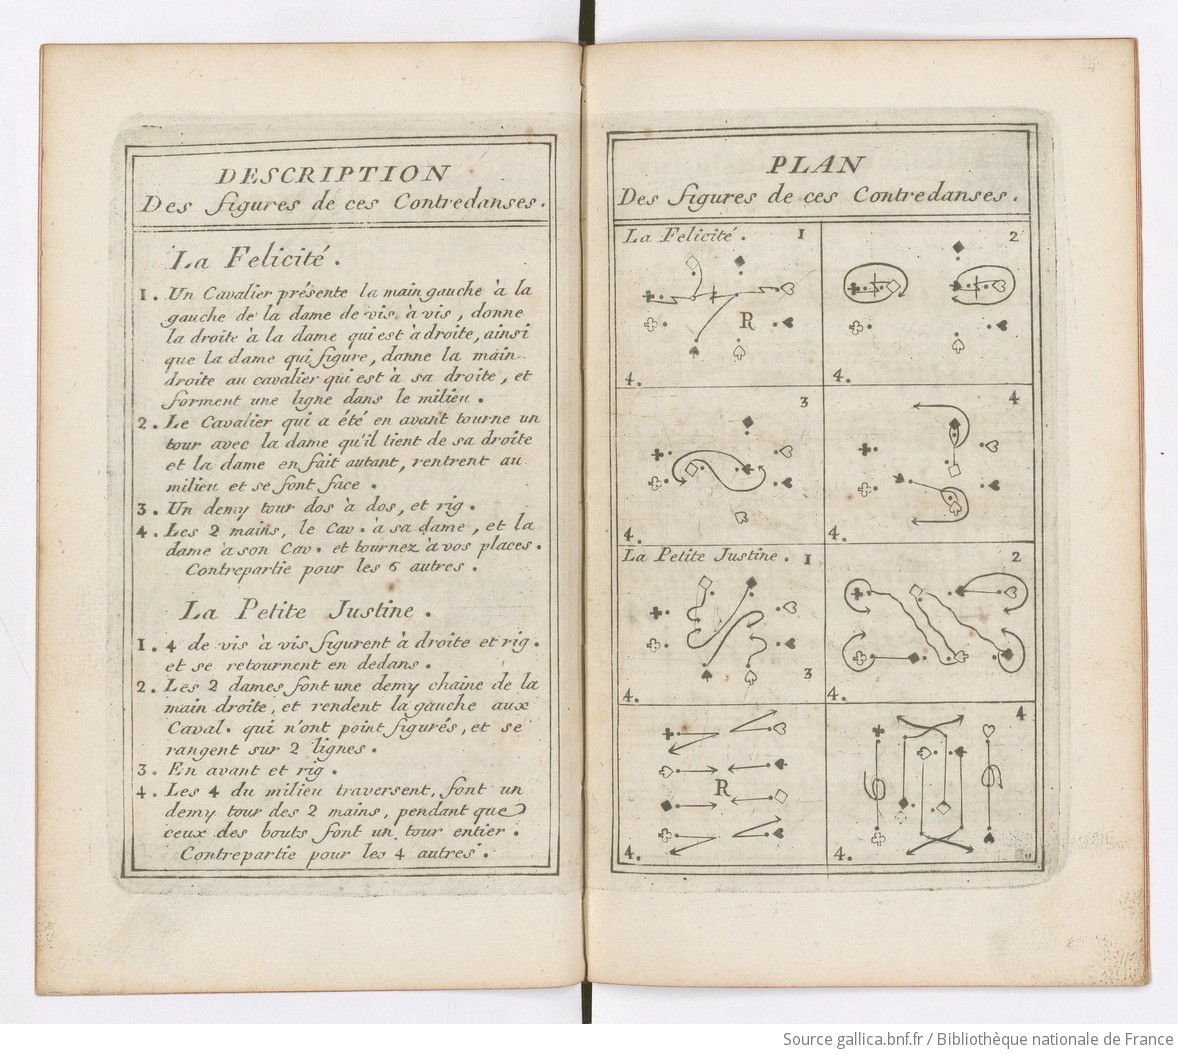 DESCRIPTION
Des figures de ces Contredanses.
La Felicité.
1. Un Cavalier présente la main gauche à la
gauche de la dame de vis à vis, donne
la droite à la dame qui est à droite, ainsi
que la dame qui figure, donne la main
droite au cavalier qui est à sa droite, et
forment une ligne dans le milieu.
2. Le Cavalier qui a été en avant tourne un
tour avec la dame qu'il tient de sa droite
et la dame en fait autant, rentrent au
milieu et se font face.
3. Un demy tour dos à dos, et rig.
4. Les 2 mains, le Cav. à sa dame, et la
dame à son Cav. et tournez à vos places.
Contrepartie pour les 6 autres.
La Petite Justine.
1. 4 de vis à vis figurent à droite et rig.
et se retournent en dedans.
2. Les 2 dames font une demy chaine de la
main droite, et rendent la gauche aux
Caval. qui n'ont point figurés, et se
rangent sur 2 lignes.
3. En avant et rig.
4. Les 4 du milieu traversent, font un
demy tour des 2 mains, pendant que
ceux des bouts font un tour entier.
Contrepartie pour les 4 autres.
PLAN
Des figures de ces Contredanses.
La Felicité. 1
R
4.
2
4.
3
4.
4
4.
La Petite Justine. 1
4.
2
4.
3
R
4.
4
4.
Source gallica.bnf.fr / Bibliothèque nationale de France